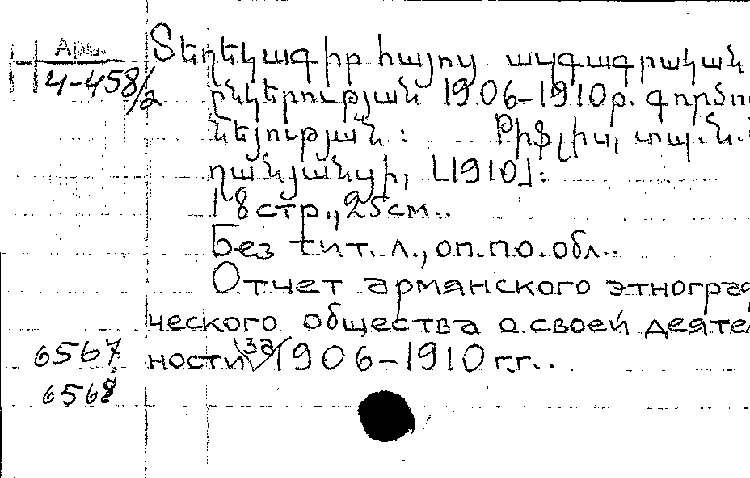 Арм.
4-458/2
Տեղեկագիր հայոց ազգագրական
ընկերության 1906-1910թ. գործու
նեյության: Թիֆլիս, տպ. Ն.
ղանյանցի, [1910]:
18 стр., 25см..
Без тит. л., оп. по. обл..
Отчет армянского этногра
ческого общества о своей деяте
6567 ности за 1906-1910 г.г..
6568